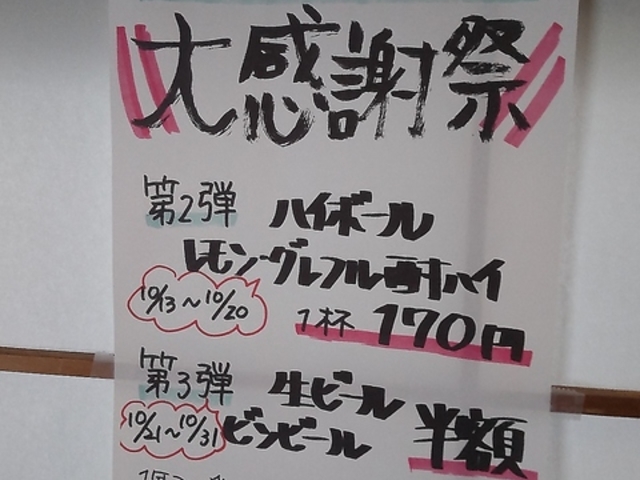 大感謝祭
第2弾 ハイボール
レモン・グレフル酎ハイ
10/13〜10/20 1杯 170円
第3弾 生ビール
10/21〜10/31 ビンビール 半額